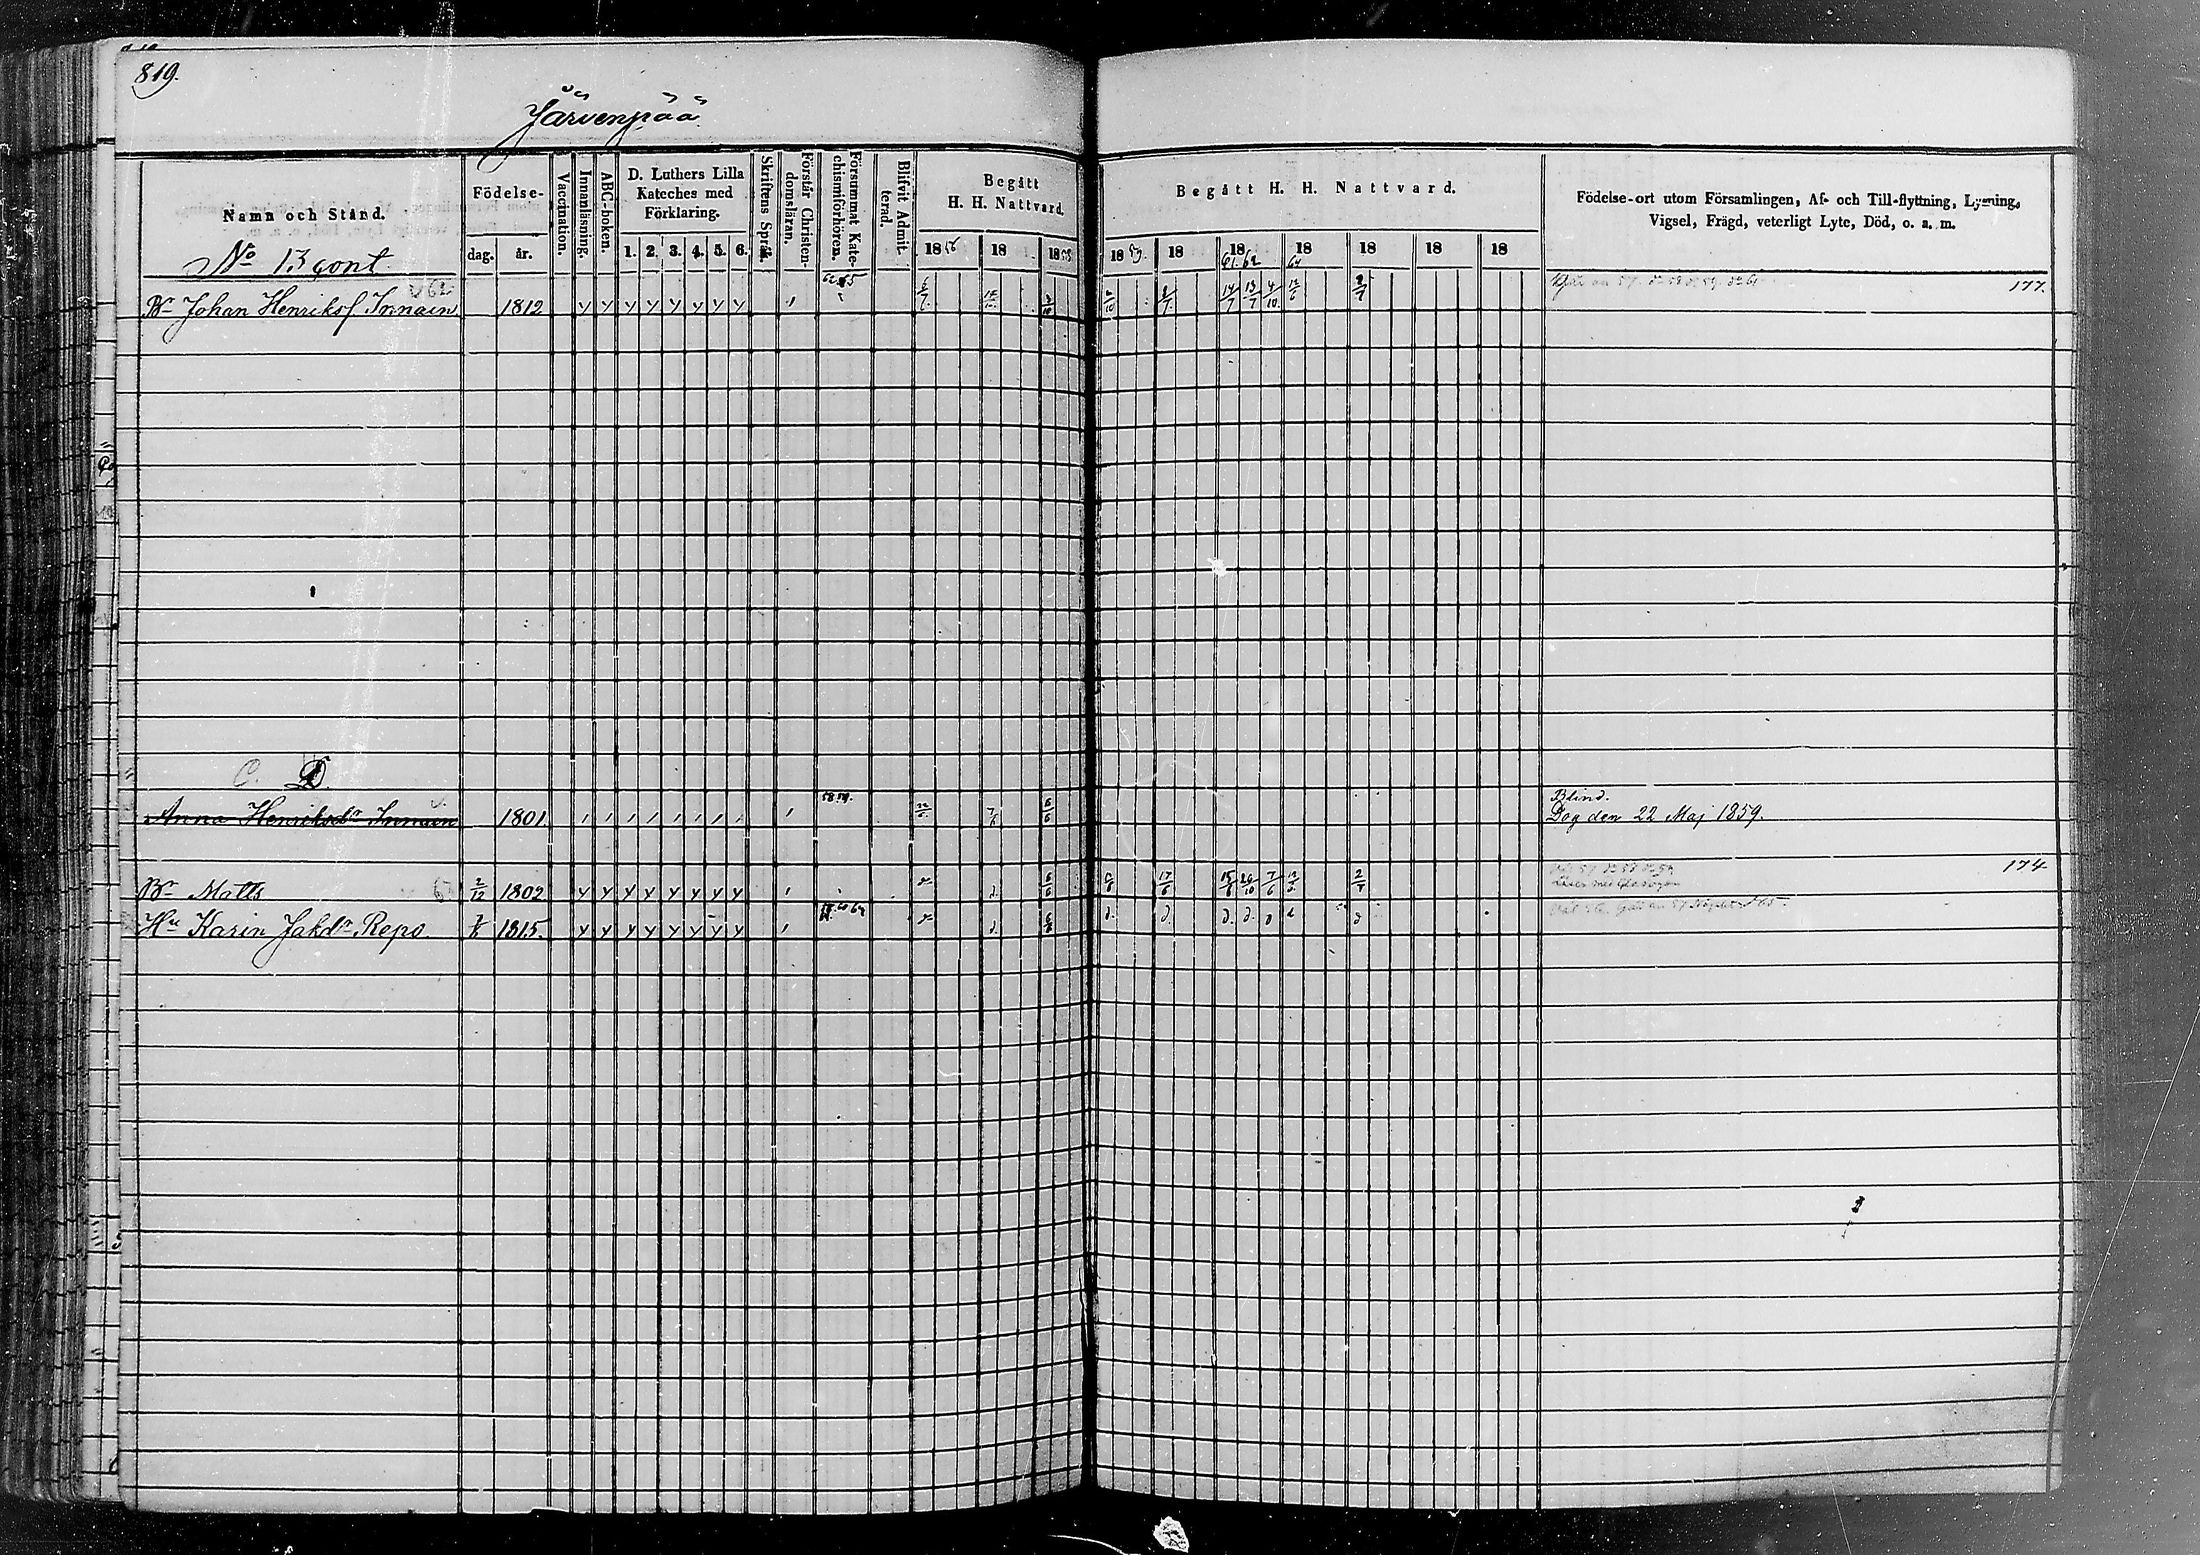 819.
Järvenpää
Namn och Stånd.
Födelse-
dag. år.
Vaccination.
Innanläsning.
ABC-boken.
D. Luthers Lilla
Kateches med
Förklaring.
1. 2. 3. 4. 5. 6.
Skriftens Språk.
Förstår Christen-
domsläran.
Försummat Kate-
chismiförhören.
Blifvit Admit-
terad.
Begått
H. H. Nattvard.
1856 18 1858
Begått H. H. Nattvard.
1859. 18 18 61. 62 18 64 18 18 18
Födelse-ort utom Församlingen, Af- och Till-flyttning, Lysning,
Vigsel, Frägd, veterligt Lyte, Död, o. a. m.
No 13 cont.
Br Johan Henriksf Innain 1812 y y y y y y y y 177.
C. D.
Anna Henriksdr Innain 1801. 58 59. Blind.
Dog den 22 Maj 1859.
Br Matts 2/12 1802 y y y y y y y y 6/6 17/6 15/6 7/6 174
Hu Karin Jakdr Repo. 1815. y y y y y y y y